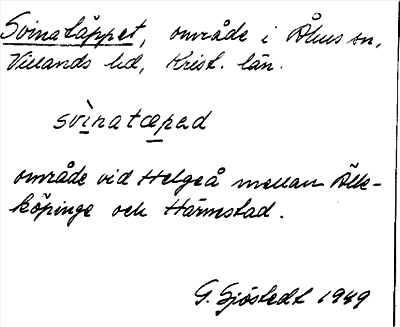 Svinatäppet, område i Åhus sn,
Villands hd, Krist. län.
svinatæped
område vid Helgeå mellan Ålle-
köpinge och Härnestad.
G. Sjöstedt 1949